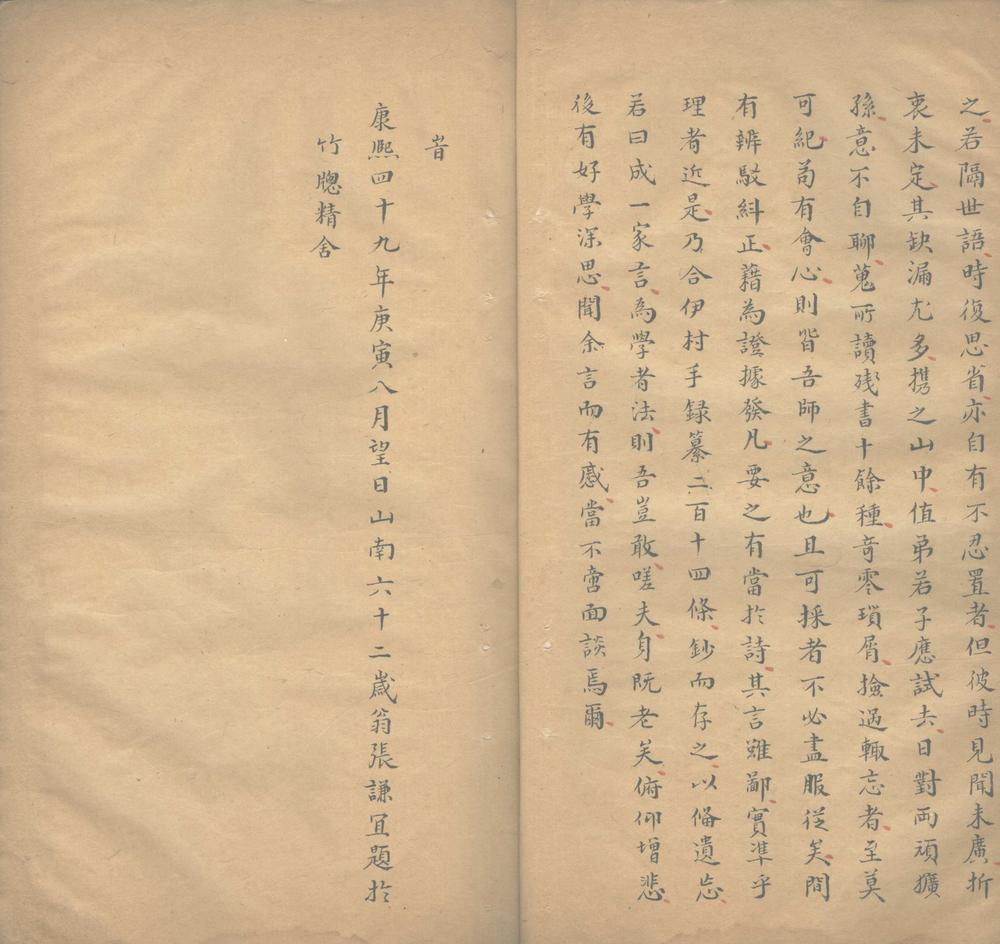 之若隔世語時復思省亦自有不忍置者但彼時見聞未廣折
衷未定其缺漏尢多携之山中值弟若子應試去日對兩頑獷
孫意不自聊蒐所讀殘書十餘種竒零瑣屑撿過輙忘者至莫
可紀苟有會心則皆吾師之意也且可採者不必盡服従矣間
有辨駁糾正藉為證據發凡要之有當扵詩其言雖鄙實準乎
理者近是乃合伊村手録纂二百十四條鈔而存之以俻遺忘
若曰成一家言為學者法則吾豈敢嗟夫身既老矣俯仰增悲
後有好學深思聞余言而有感當不啻面談焉爾
旹
康熙四十九年庚寅八月望日山南六十二嵗翁張謙宜題扵
竹牕精舍